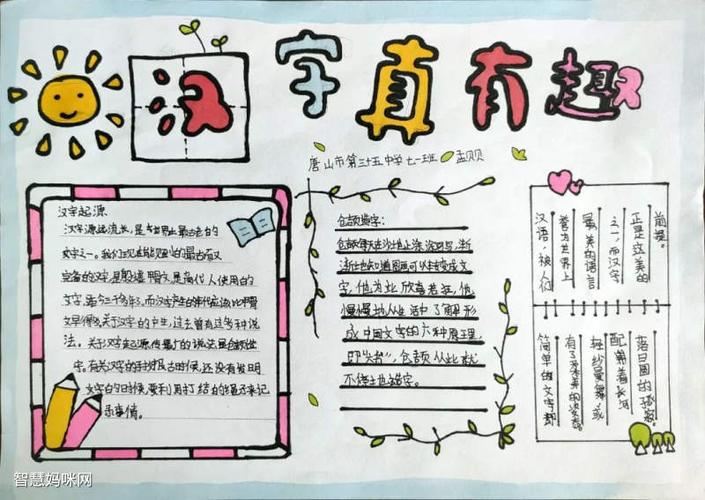 汉字真有趣
唐山市第三十五中学七一班 孟贝贝
汉字起源
汉字源远流长，是世界上最古老的
文字之一。我们现在能见到的最古而又
完备的汉字，是殷墟甲骨文，是商代人使用的
文字，距今三千多年，而汉字产生的年代应该比甲骨
文早得多。关于汉字的产生，过去曾有过多种说
法。关于汉字起源，传最广的说法是仓颉造
字。有关汉字的
文字的时候，要利用打结的绳子来记
录事情。
仓颉造字：
仓颉每天在沙地上涂涂写写，渐
渐他知道图画可以转变成文
字，他为此欣喜若狂，他
慢慢地从生活中了解形
成中国文字的六种原理，
即"六书"，仓颉从此就
不停地造字。
汉语，被人们
誉为世界上
最美的语言
之一，而汉字
正是立美的
前提。
简单的文字都
有了柔美的姿态。
轻纱曼舞，或
配漸着长河
落日圆的
智慧妈咪网